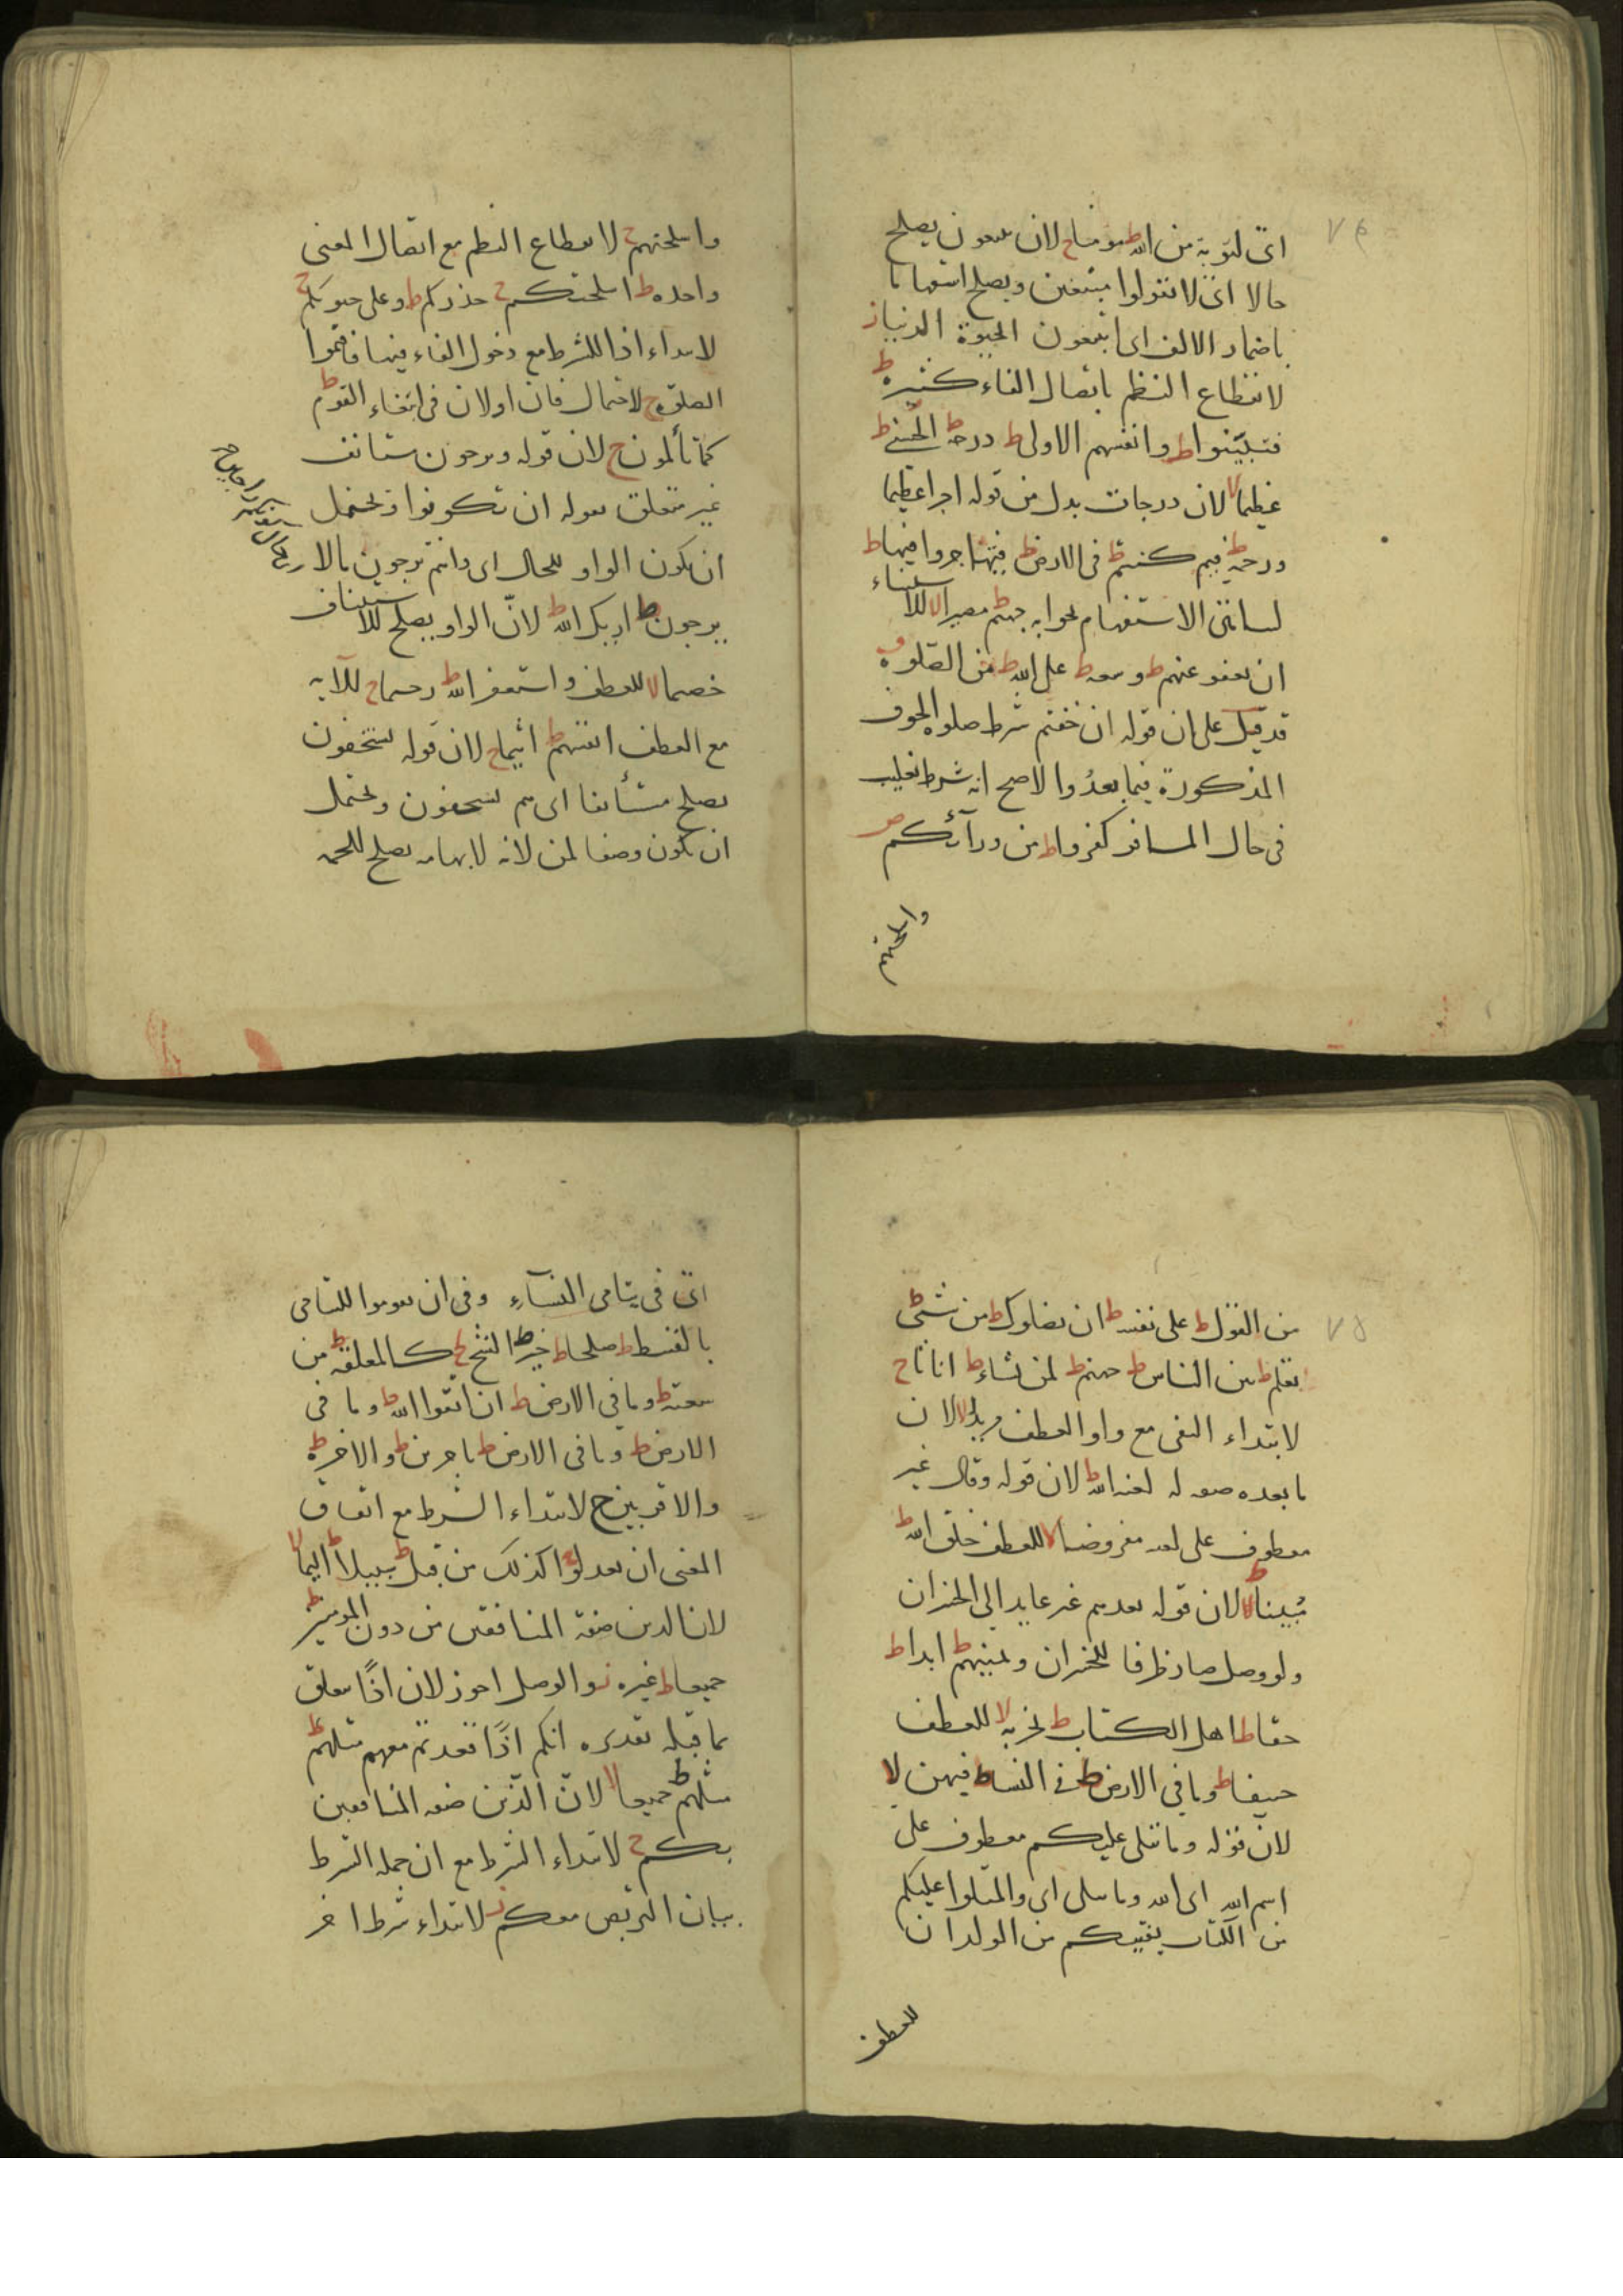 ٧٤
اى لتوبة من الله ط مؤمنا ح لان تبتغون يصلح
حالا اى لا تقولوا مبتغين ويصلح استفهاما
باضمار الالف اى اتبتغون الحيوة الدنيا ز
لانقطاع النظم باتصال الفاء كثيرة ط
فتبينوا ط وانفسهم الاولى ط درجة ط الحسنى ط
عظيما لا لان درجات بدل من قوله اجرا عظيما
ورحمة ط فيم كنتم ط فى الارض ط فتهاجروا فيها ط
لتناهى الاستفهام بجوابه جهنم ط مصيرا لا للاستثناء
ان يعفو عنهم ط وسعة ط على الله ط من الصلوة ق
قد قيل على ان قوله ان خفتم شرط صلوة الخوف
المذكورة فيما بعد والا صح انه شرط تغليب
فى حال المسافر كفروا ط من ورائكم ص
واسلحتهم
واسلحتهم ح لانقطاع النظم مع اتصال المعنى
واحدة ط اسلحتكم ح حذركم ط وعلى جنوبكم ح
لابتداء اذا للشرط مع دخول الفاء فيها فاقيموا
الصلوة ح لاحتمال فان او لان فى ابتغاء القوم ط
كما تألمون ح لان قوله وترجون مستانف
غير متعلق بقوله ان تكونوا وتحتمل
ان يكون الواو للحال اى وانتم ترجون مالا
يرجون ط اريك الله ط لان الواو يصلح للاستيناف
خصيما لا للعطف واستغفر الله ط رحيما ح للآية
مع العطف انفسهم ط اثيما ح لان قوله يستخفون
يصلح مستأنفا اى هم يستخفون وتحتمل
ان يكون وصفا لمن لانه لابهامه يصلح للجمع
٧٥
من القول ط على نفسه ط ان يضلوك ط من شئ ط
تعلم ط بين الناس ط جهنم ط لمن يشاء ط اناثا ح
لابتداء النفى مع واو العطف مريدا لا لان
ما بعده صفة له لعنه الله ط لان قوله وقال غير
معطوف على لعنه مفروضا لا للعطف خلق الله ط
مبينا ط لان قوله يعدهم غير عايد الى الخسران
ولو وصل صار ظرفا للخسران ويمنيهم ط ابدا ط
حقا ط اهل الكتاب ط يجز به لا للعطف
حنيفا ط وما فى الارض ط فى النساء ط فيهن لا
لان قوله وما يتلى عليكم معطوف على
اسم الله اى الله وما يتلى اى والمتلوا عليكم
من الكتاب يفتيكم من الولدان
للعطف
اى فى يتامى النساء وفى ان تقوموا لليتامى
بالقسط ط صلحا ط خير ط الشح ط كالمعلقة ط من
سعته ط وما فى الارض ط ان اتقوا الله ط وما فى
الارض ط وما فى الارض ط باخرين ط والاخرة ط
والاقربين ح لابتداء الشرط مع اتفاق
المعنى ان تعدلوا ح كذلك من قبل ط سبيلا ط اليما لا
لان الذين صفة المنافقين من دون المؤمنين ط
جميعا ط غيره ز والوصل اجوز لان اذا متعلق
بما قبله تقديره انكم اذا قعدتم معهم مثلهم ط
مثلهم ط جميعا لا لان الذين صفة المنافقين
بكم ح لابتداء الشرط مع ان جملة الشرط
بيان التربص معكم ز لابتداء شرط اخر